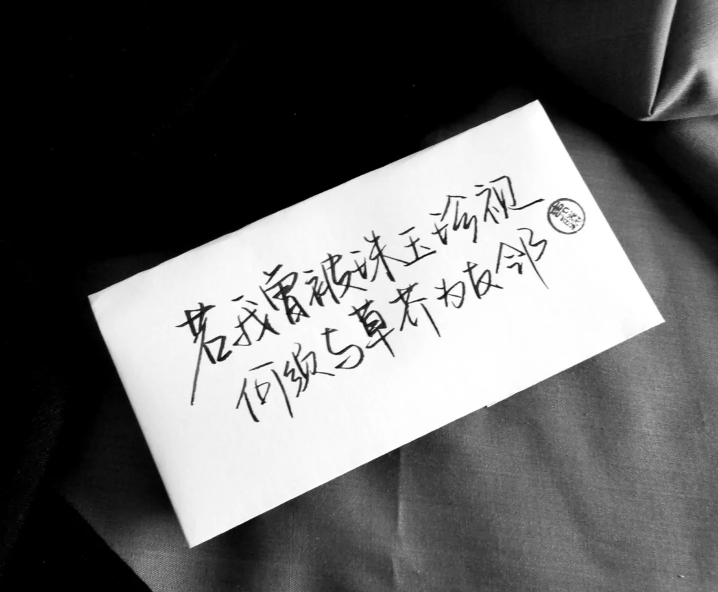 若我曾被珠玉珍视
何须与草芥为友邻